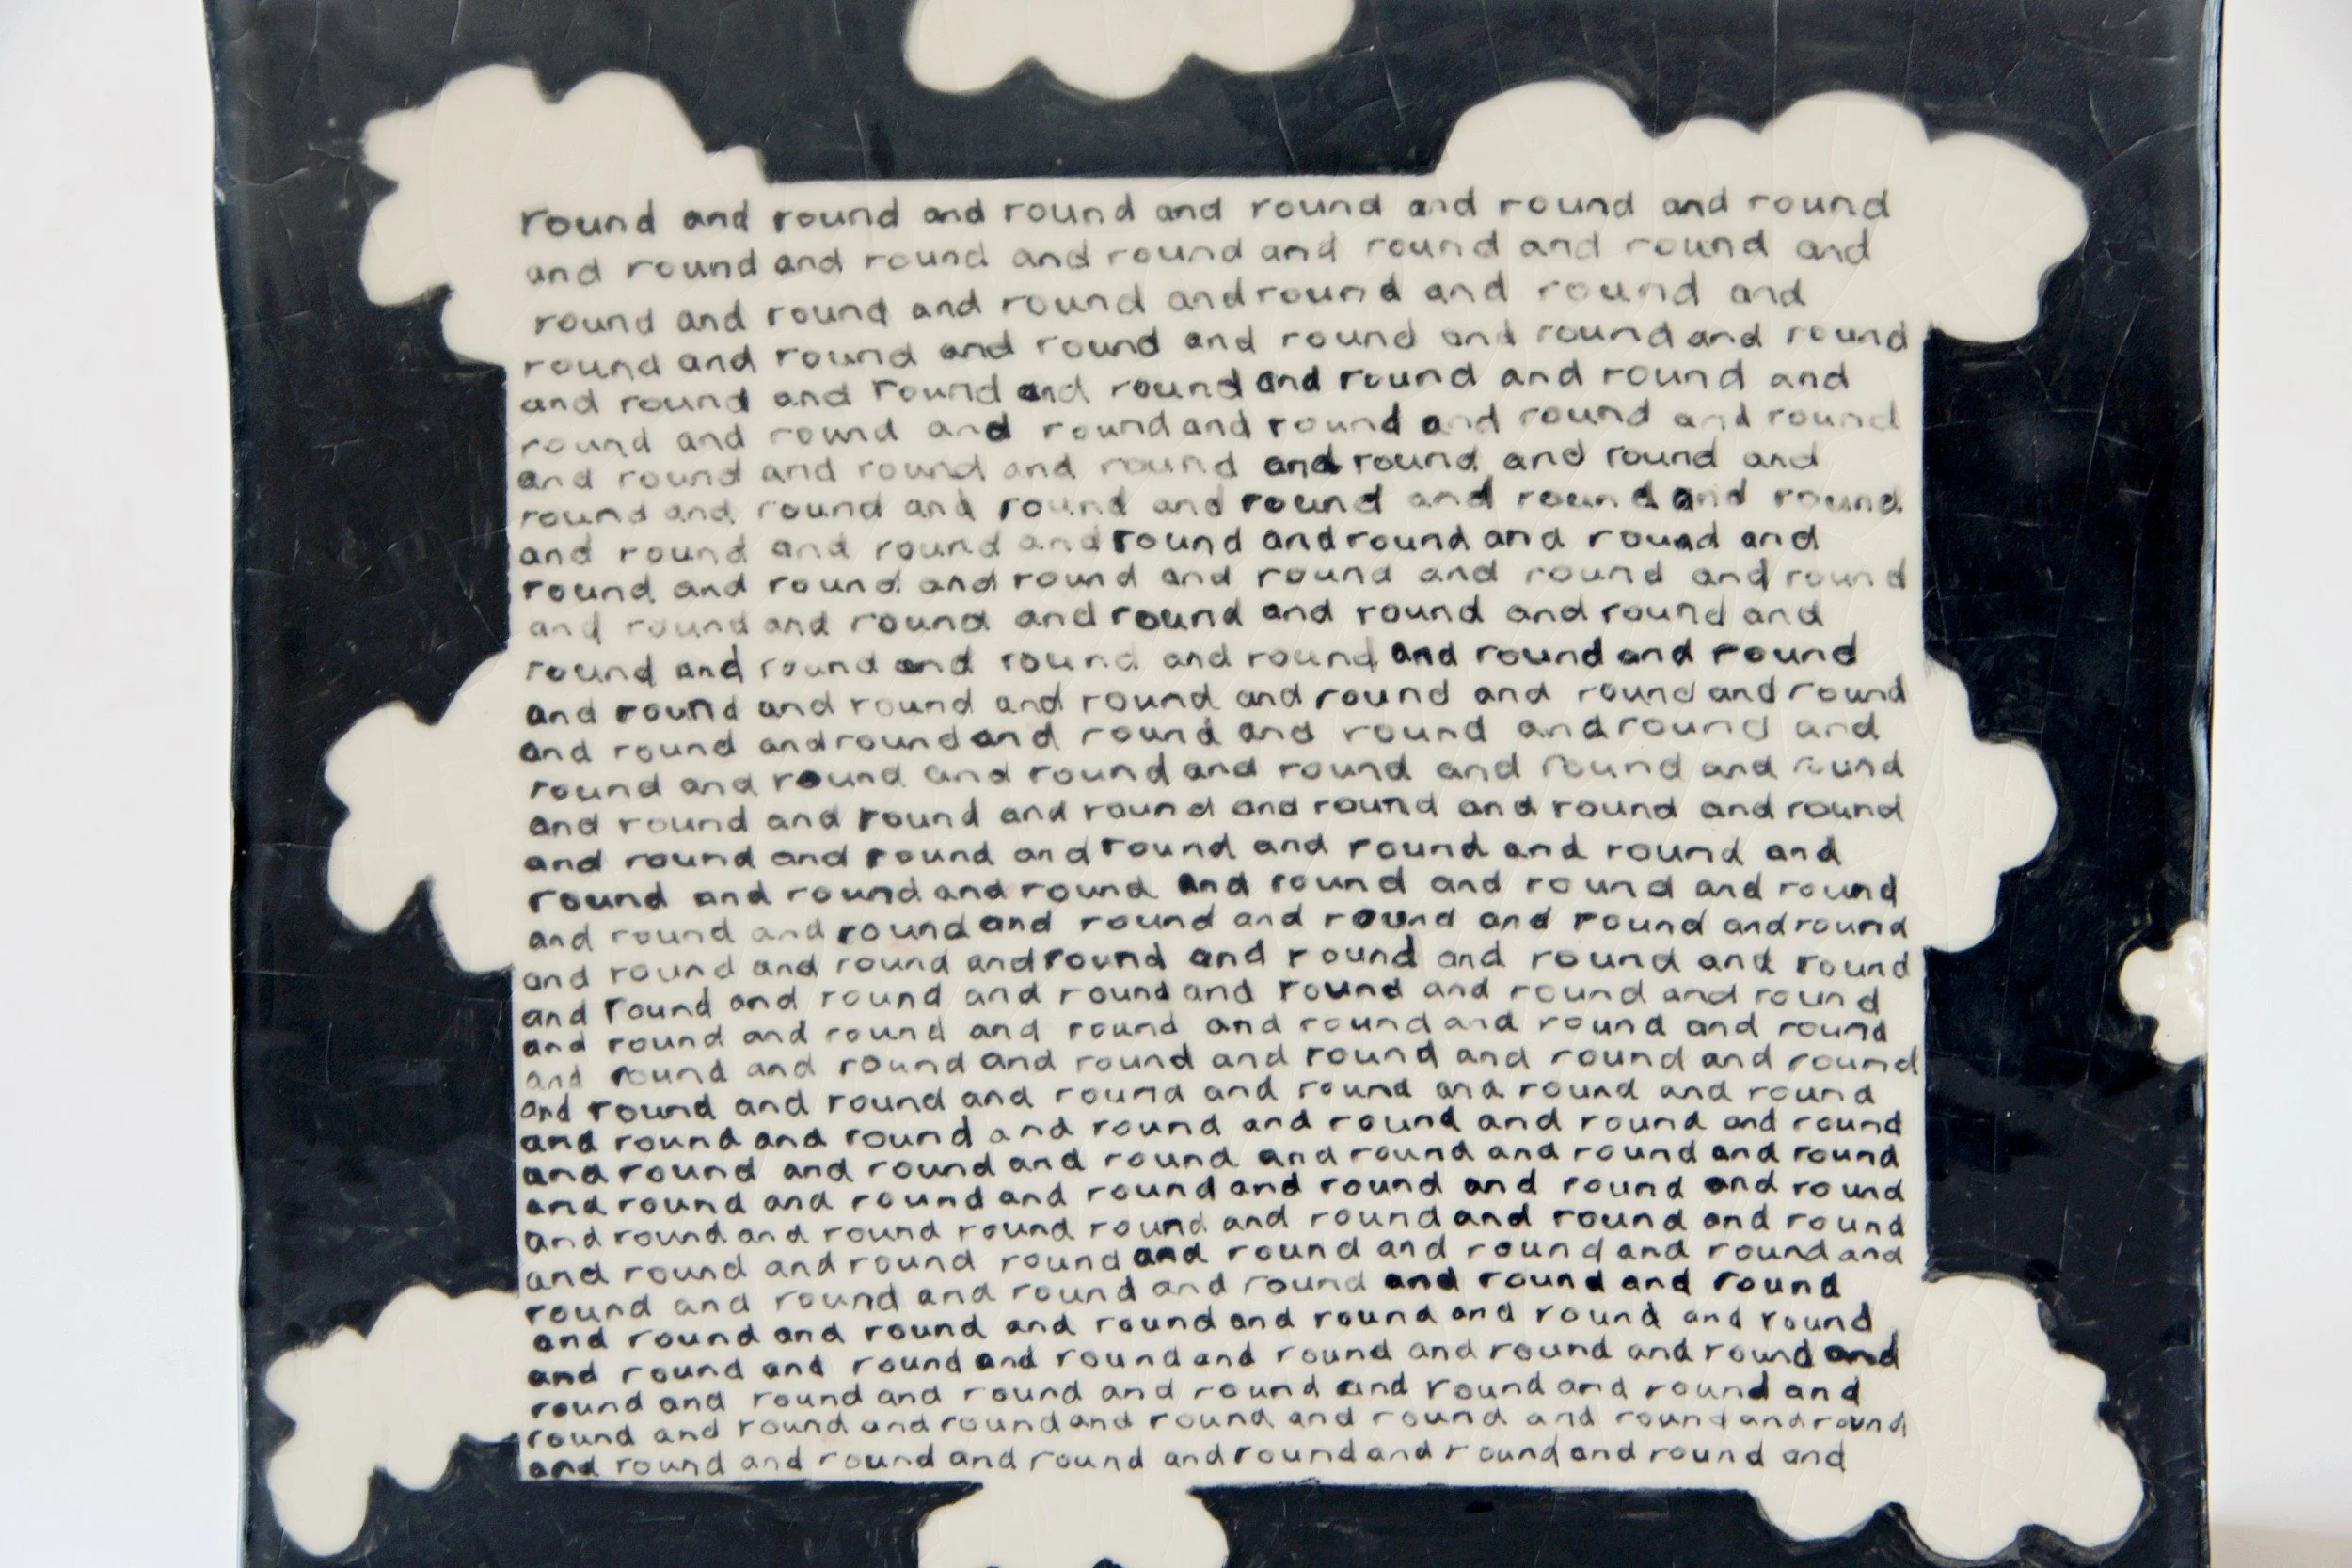 round and round and round and round and round and round
and round and round and round and round and round and
round and round and round and round and round and
round and round and round and round and round and round
and round and round and round and round and round and
round and round and round and round and round and round
and round and round and round and round and round and
round and round and round and round and round and round
and round and round and round and round and round and
round and round and round and round and round and round
and round and round and round and round and round and
round and round and round and round and round and round
and round and round and round and round and round and round
and round and round and round and round and round and
round and round and round and round and round and round
and round and round and round and round and round and round
and round and round and round and round and round and
round and round and round and round and round and round
and round and round and round and round and round and round
and round and round and round and round and round and round
and round and round and round and round and round and round
and round and round and round and round and round and round
and round and round and round and round and round and round
and round and round and round and round and round and round
and round and round and round and round and round and round
and round and round and round and round and round and round
and round and round and round and round and round and round
and round and round round round and round and round and round
and round and round round and round and round and round and
round and round and round and round and round and round
and round and round and round and round and round and round
and round and round and round and round and round and round and
round and round and round and round and round and round and
round and round and round and round and round and round and round
and round and round and round and round and round and round and